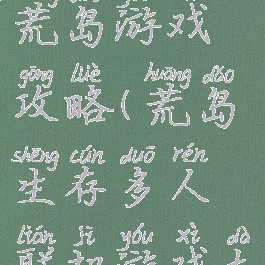 荒岛游戏
gōng lüè huāng dǎo
攻略(荒岛
shēng cún duō rén
生存多人
lián jī yóu xì dà